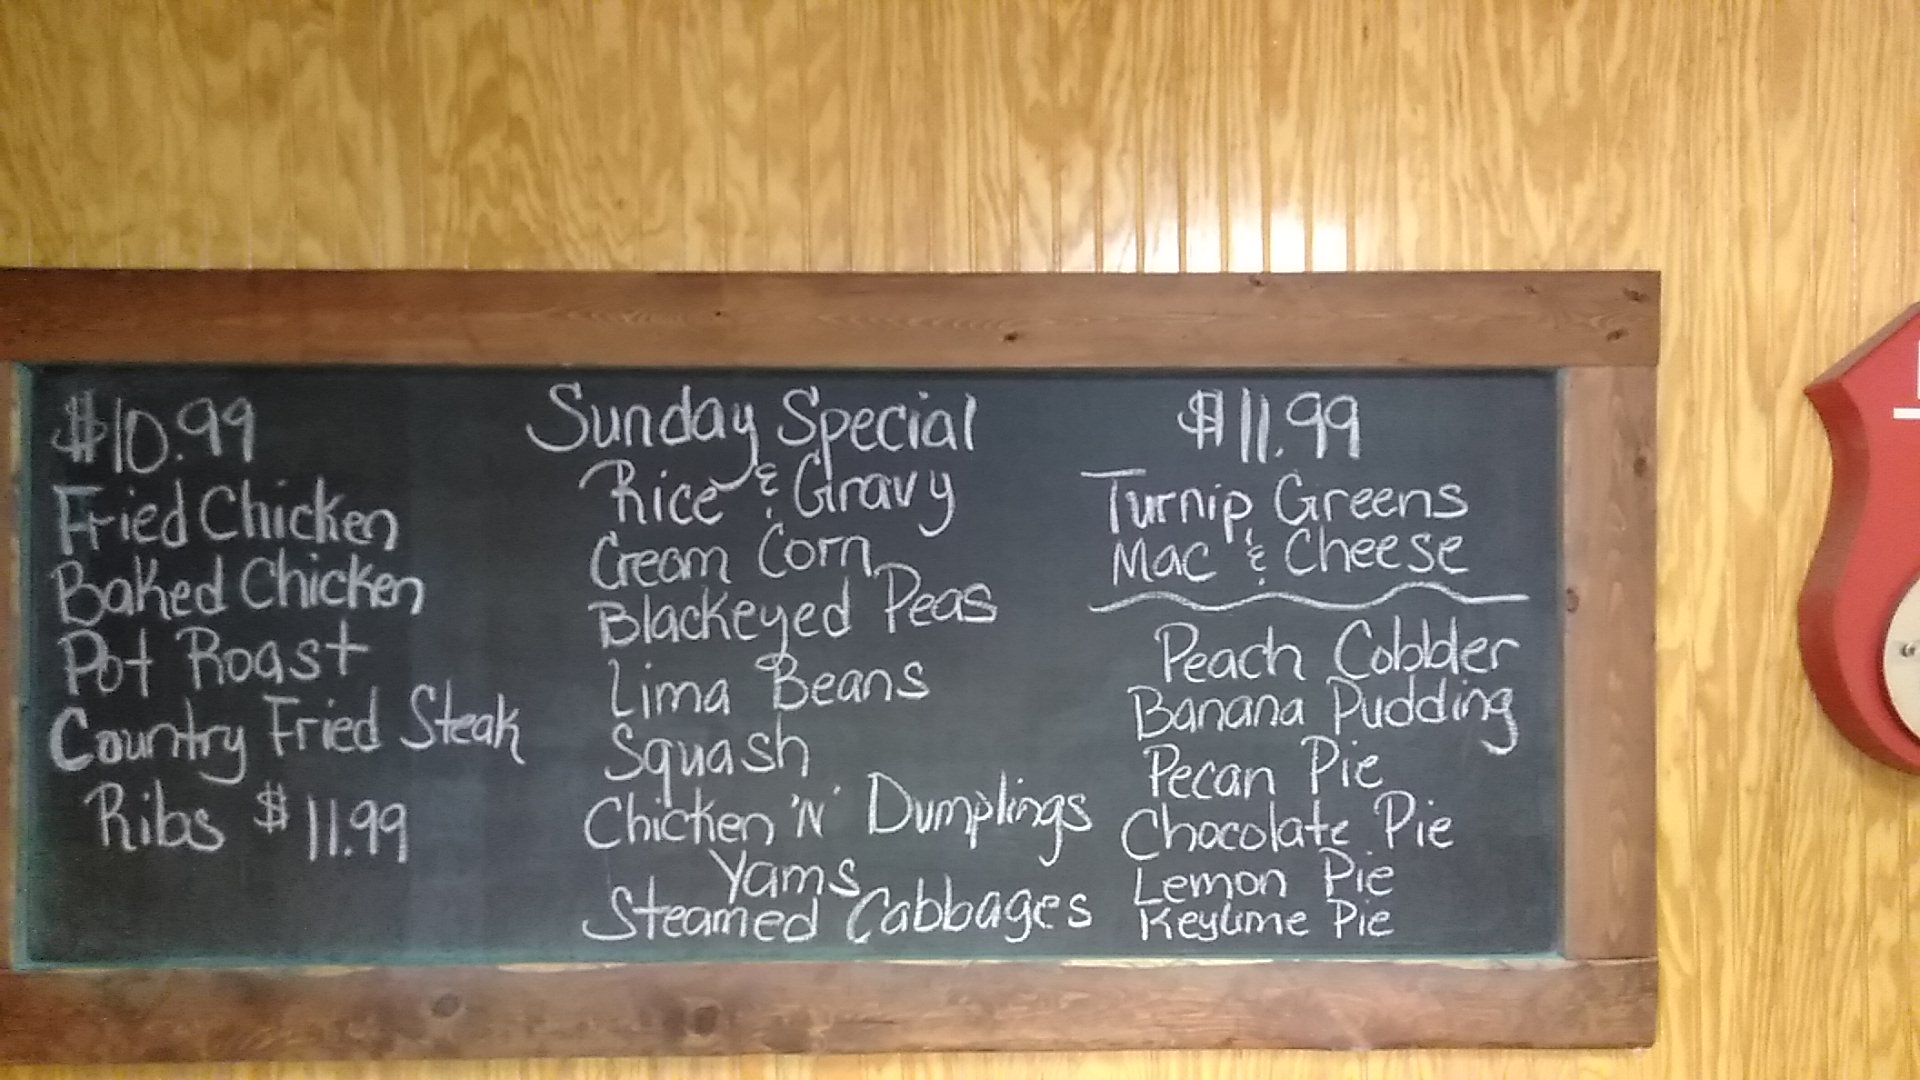 $10.99
Fried Chicken
Baked Chicken
Pot Roast
Country Fried Steak
Ribs $11.99
Sunday Special
Rice & Gravy
Cream Corn
Blackeyed Peas
Lima Beans
Squash
Chicken 'N' Dumplings
Yams
Steamed Cabbages
$11.99
Turnip Greens
Mac & Cheese
Peach Cobbler
Banana Pudding
Pecan Pie
Chocolate Pie
Lemon Pie
Keylime Pie